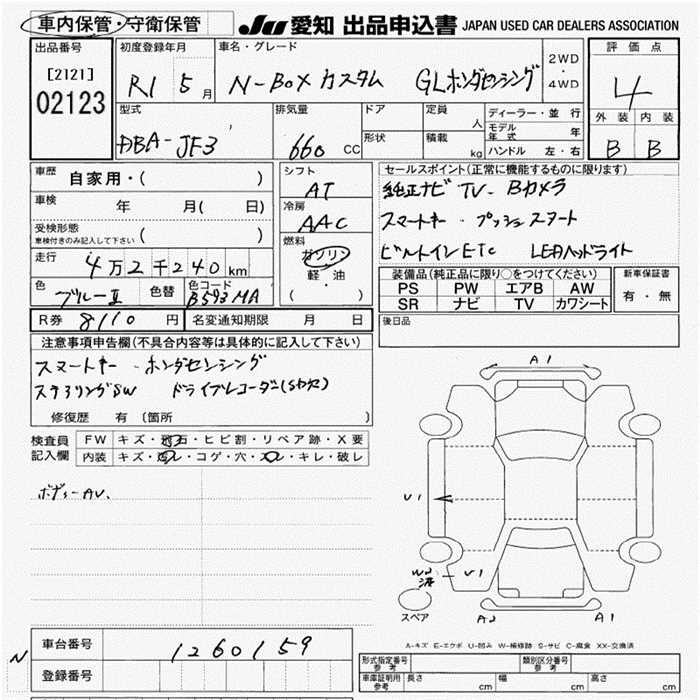 車内保管・守衛保管
JU 愛知 出品申込書 JAPAN USED CAR DEALERS ASSOCIATION
出品番号
[2121]
02123
初度登録年月
R1 5 月
車名・グレード
N-BOX カスタム GLホンダセンシング
2WD
・
4WD
評価点
4
外装 内装
B B
型式
DBA-JF3
排気量
660 CC
ドア
形状
定員
人
積載
kg
ディーラー・並行
モデル年式 年
ハンドル 左・右
車歴
自家用・( )
車検 年 月( 日)
受検形態
車検付きのみ記入して下さい ( )
走行
4万2千240km
色
ブルーII
色替
色コード
B593MA
シフト
AT
冷房
AAC
燃料
ガソリン
軽・油
( ・ )
セールスポイント(正常に機能するものに限ります)
純正ナビ TV・Bカメラ
スマートキー・プッシュスタート
ビルトインETC LEDヘッドライト
装備品(純正品に限り○をつけてください)
PS PW エアB AW
SR ナビ TV カワシート
新車保証書
有・無
R券 8110 円
名変通知期限 月 日
後日品
注意事項申告欄(不具合内容等は具体的に記入して下さい)
スマートキー・ホンダセンシング
ステアリングSW ドライブレコーダー(SD欠)
修復歴 有 (箇所 )
検査員
記入欄
FW キズ・飛石・ヒビ割・リペア跡・X要
内装 キズ・汚レ・コゲ・穴・スレ・キレ・破レ
ボディーAU.
A1
U1
U1
A2 A1
スペア
A-キズ E-エクボ U-凹み W-補修跡 S-サビ C-腐食 XX-交換済
N
車台番号 1260159
登録番号
形式指定番号
参考
類別区分番号
参考
車庫証明用
参考
長さ cm 幅 cm 高さ cm